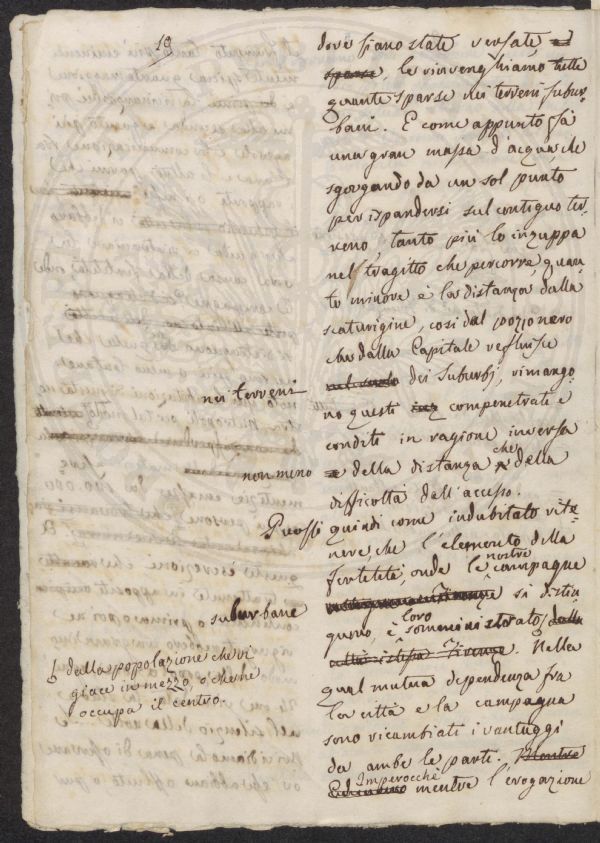 19
dove siano state versate, e
sparse, le rinvenghiamo tutte
quante sparse nei terreni subur-
bani. E come appunto fà
una gran massa d'acqua che
sgorgando da un sol punto
per ispandersi sul contiguo ter-
reno, tanto più lo inzuppa
nel tragitto che percorre, quan-
to minore è la distanza dalla
scaturigine, così dal pozzo nero
che dalla Capitale refluisce
nei terreni
nel suolo dei suburbj, rimango-
no questi compenetrati e
conditi in ragione inversa
non meno
e della distanza che della
difficoltà dell'accesso.
Puossi
quindi come indubitato rite-
nere, che l'elemento della
fertilità, onde le nostre campagne
suburbane
si distin
guono, è loro somministrato dalla
dalla popolazione che vi
giace in mezzo, o che ne
occupa il centro.
città istessa Firenze. Nella
qual mutua dipendenza fra
la città e la campagna
sono ricambiati i vantaggi
da ambe le parti. Mentre
Imperocchè
mentre l'erogazione